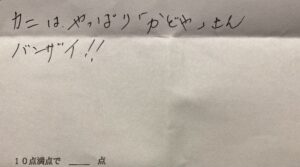 カニはやっぱり「かどや」さん
バンザイ!!
10点満点で ____ 点